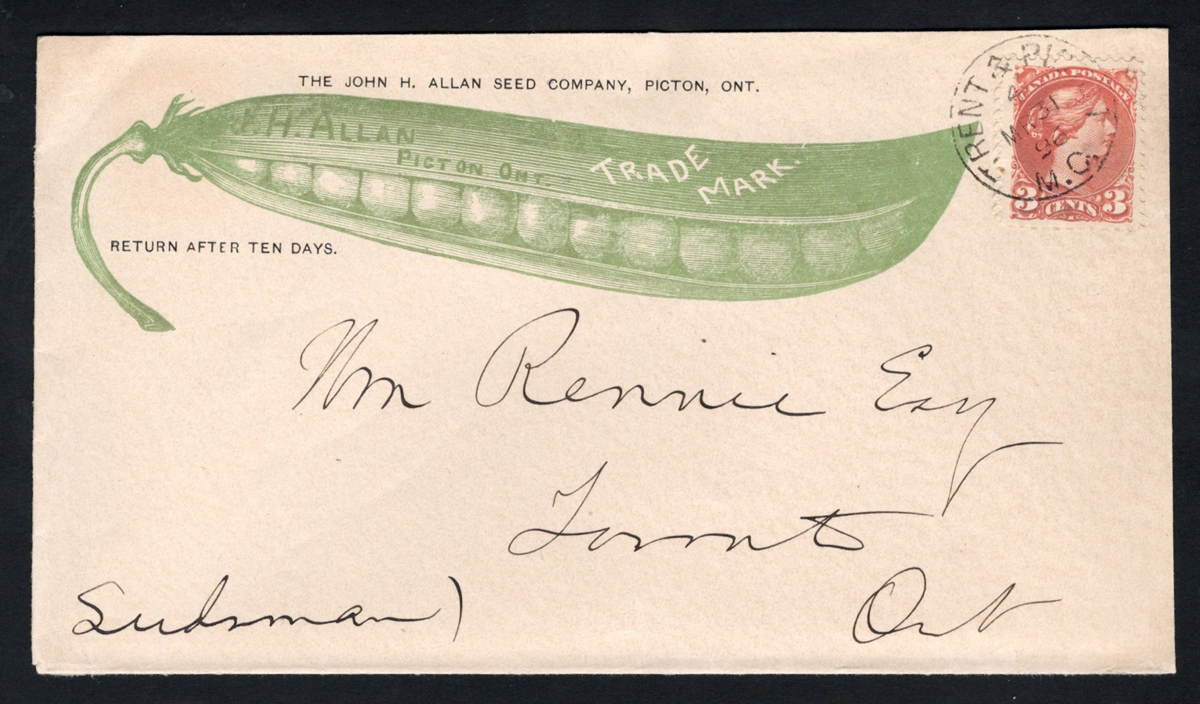 THE JOHN H. ALLAN SEED COMPANY, PICTON, ONT.
J. H. ALLAN
PICTON ONT.
TRADE
MARK.
RETURN AFTER TEN DAYS.
CANADA POSTAGE
3 CENTS 3
TRENT & PICT
MR 31
M.C.
Wm Rennie Esq
Toronto
Ont
Seedsman)